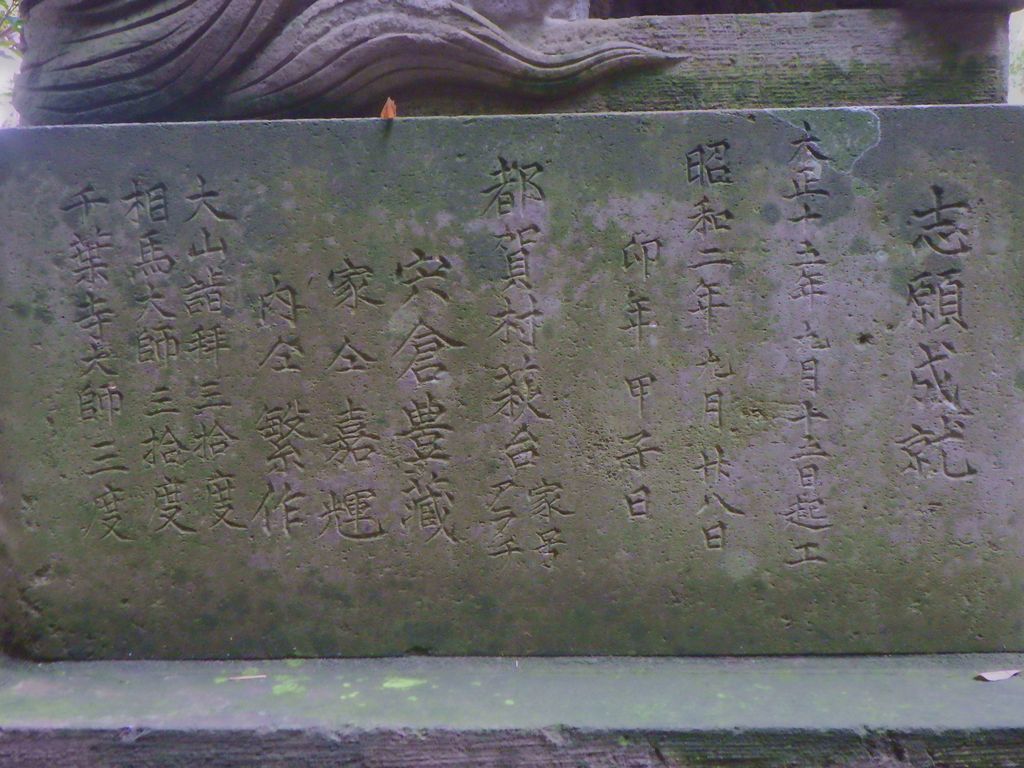 志願成就
大正十五年九月十五日起工
昭和二年九月廿八日
卯年甲子日
都賀村萩台家号アラチ
宍倉豊蔵
家仝嘉輝
内仝繁作
大山詣拜三拾度
相馬大師三拾度
千葉寺大師三度